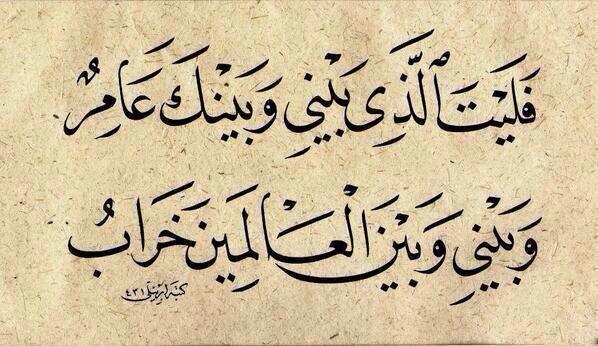 فَلَيْتَ ٱلَّذِي بَيْنِي وَبَيْنَكَ عَامِرٌ
وَبَيْنِي وَبَيْنَ الْعَالَمِينَ خَرَابُ
كتبه